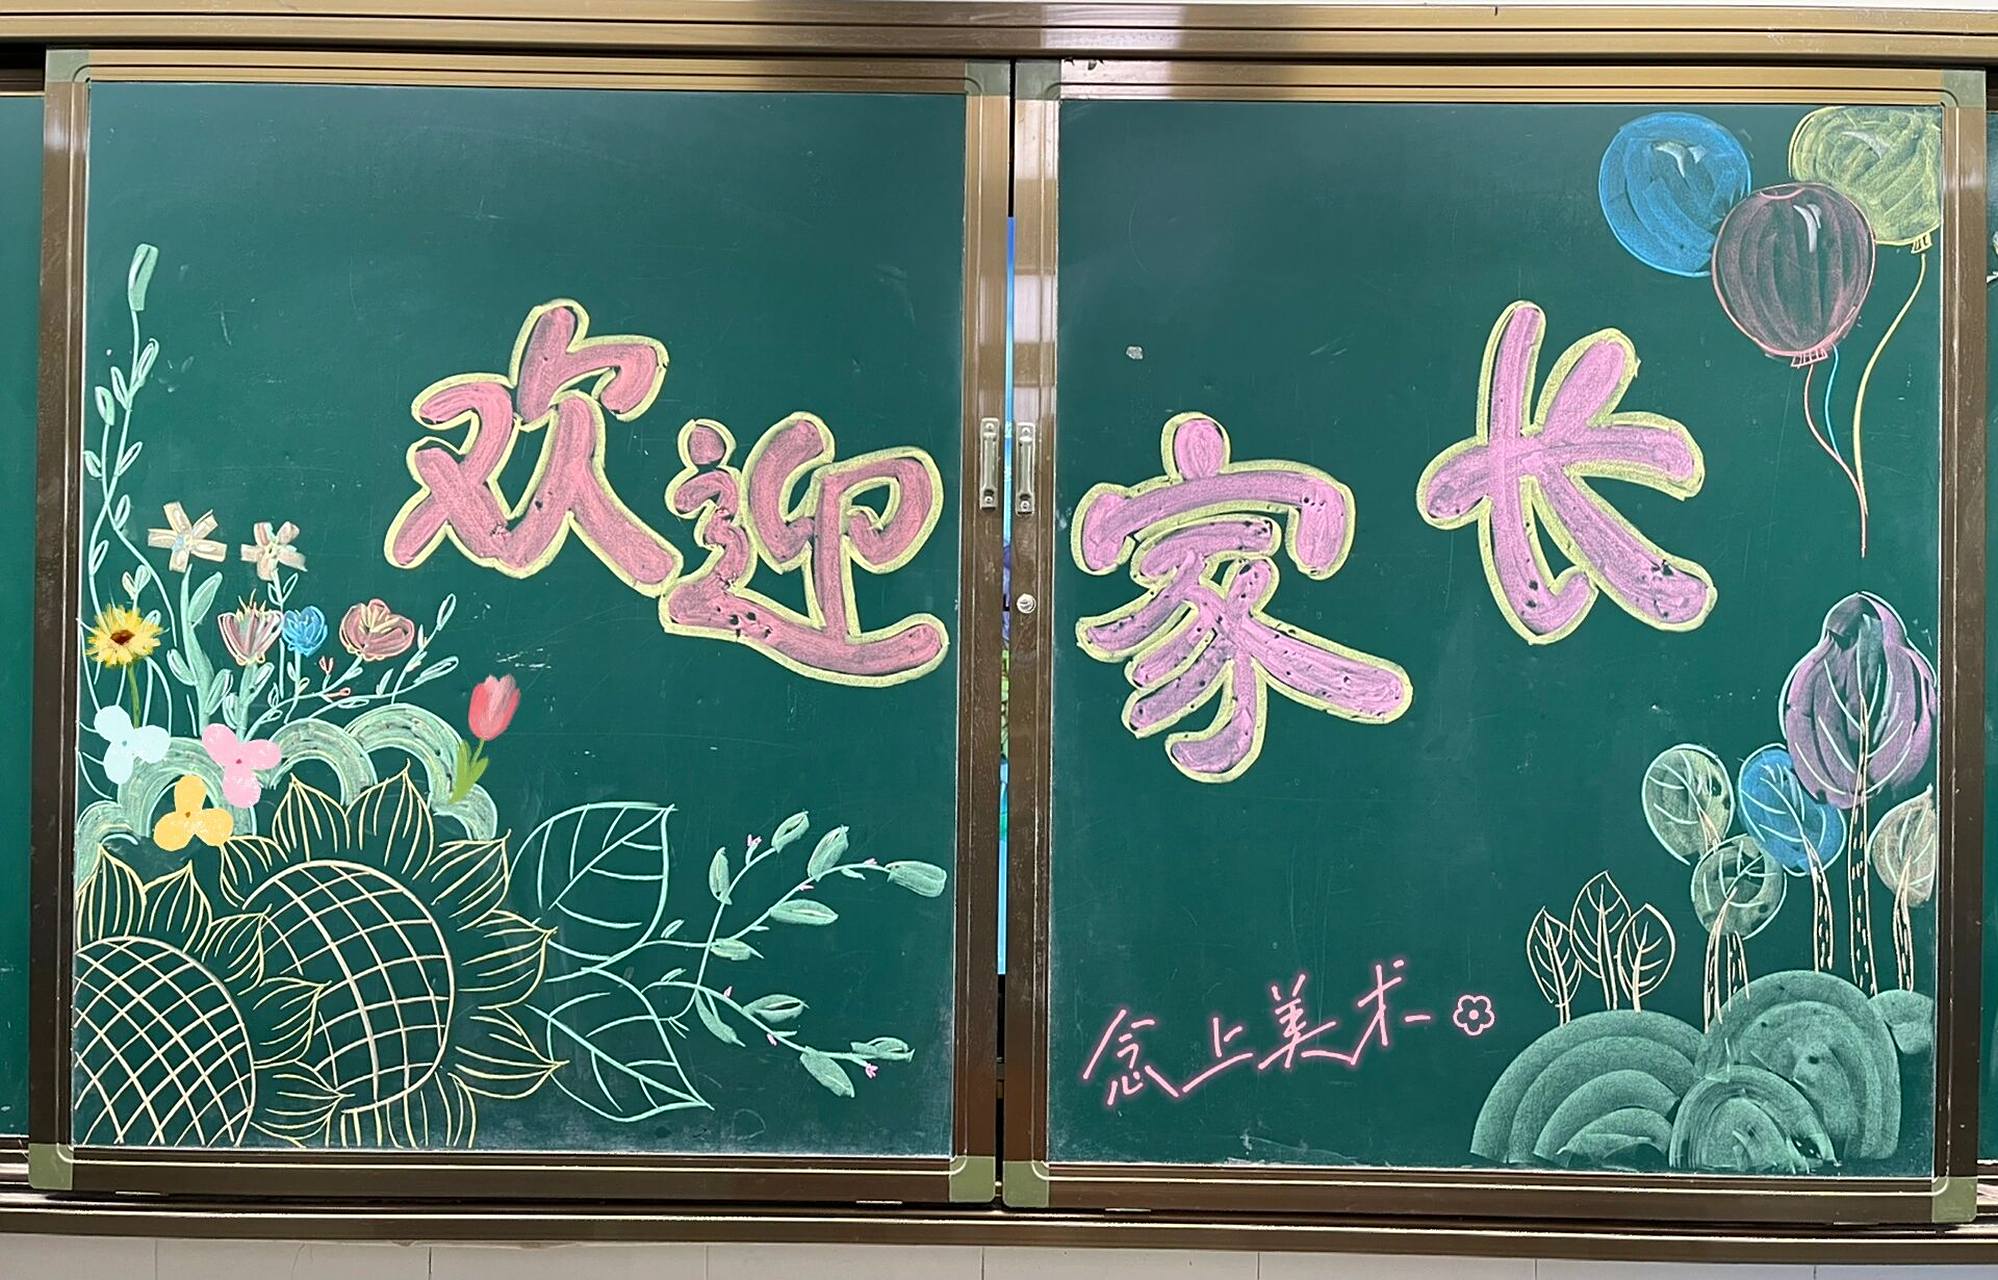 欢迎家长
念上美术